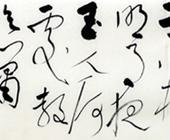 明月夜
玉人何
處教
吹簫